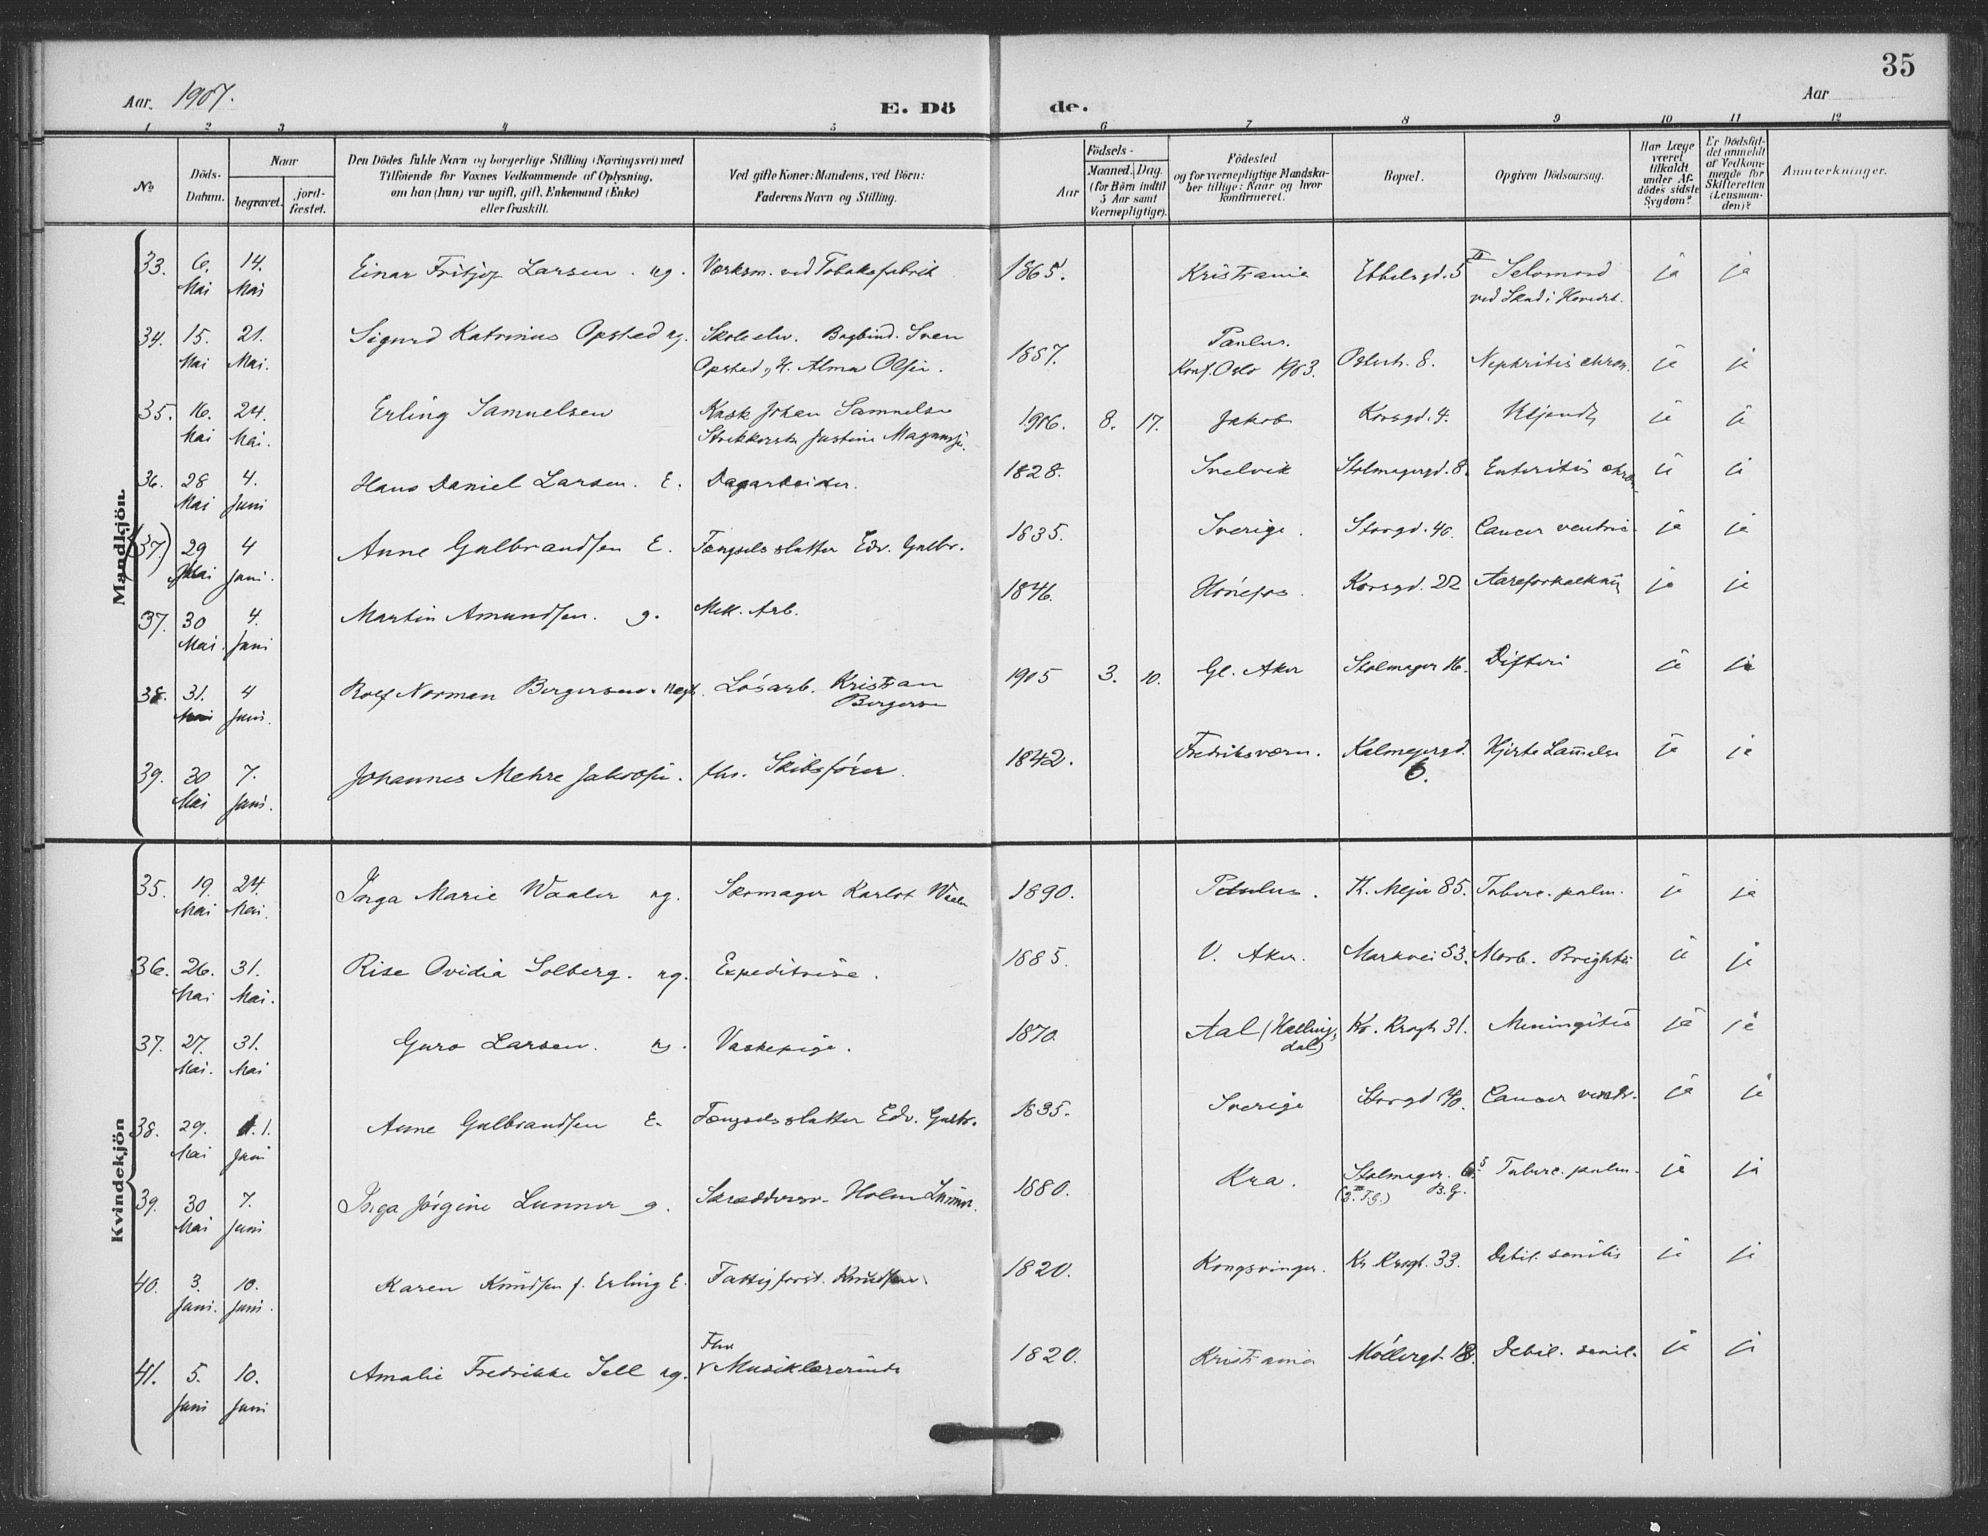 35
Aar. 1907.
E. Dö de.
Aar
1 2 3 4 5 6 7 8 9 10 11 12
No
Döds-Datum.
Naar
begravet.
jord-fæstet.
Den Dödes fulde Navn og borgerlige Stilling (Næringsvei) med
Tilföiende for Voxnes Vedkommende af Oplysning,
om han (hun) var ugift, gift, Enkemand (Enke)
eller fraskilt.
Ved gifte Koner: Mandens, ved Börn:
Faderens Navn og Stilling.
Födsels-
Aar
Maaned. Dag.
(for Börn indtil
5 Aar samt
Værnepligtige).
Födested
og for værnepligtige Mandska-
ber tillige: Naar og hvor
konfirmeret.
Bopæl.
Opgiven Dödsaarsag.
Har Læge
været
tilkaldt
under Af-
dödes sidste
Sygdom?
Er Dödsfal-
det anmeldt
af Vedkom-
mende for
Skifteretten
(Lensman-
den)?
Anmærkninger.
Mandkjön.
33. 6. Mai 14. Mai Einar Fritjof Larsen. ug. Værksm. ved Tobaksfabrik 1865. Kristiania Ebbelsgd. 5 II Selvmord ved Skud i Hovedet. ja ja
34. 15. Mai 21. Mai. Sigurd Katrinus Opstad ug. Skoleelev. Bogbind. Sven
Opstad, H. Alma Olsen. 1887. Paulus. Konf. Oslo 1903. Peterst. 8. Nephritis chron. ja ja
35. 16. Mai 24. Mai. Erling Samuelsen Kusk Johan Samuelsen
Strikkersk. Justine Magnussen. 1906. 8. 17. Jakob Korsgd. 4. Ukjendt ja ja
36. 28 Mai 4. Juni Hans Daniel Larsen. E. Dagarbeider. 1828. Svelvik Stolmagergd. 8. Enteritis chron. ja ja
(37) 29 Mai 4 Juni. Anne Gulbrandsen E. Fængselsslutter Edv. Gulbr. 1835. Sverige. Storgd. 40. Cancer ventric. ja ja
37. 30 Mai. 4. Juni Martin Amundsen. g. Mek. Arb. 1846. Hönefos. Korsgd. 22 Aareforkalkning ja ja
38. 31. Mai 4 Juni. Rolf Norman Bergersen. Lösarb. Kristian
Bergersen 1905 3. 10. Gl. Aker Stolmager 16. Difteri ja ja
39. 30 Mai 7. Juni. Johannes Mehre Jakobsen. fhv. Skibsförer. 1842. Fredriksværn. Kalmeyergd. 6. Hjerte Lammelse ja ja
Kvindekjön
35. 19. Mai 24. Mai. Inga Marie Waaler ug. Skomager Karlot Waaler 1890. Paulus. Th. Mejer 85. Tuberc. pulm. ja ja
36. 26. Mai 31. Mai. Rise Ovidia Solberg. ug. Expeditrise. 1885. V. Aker. Markvei 53. Morb. Brightii ja ja
37. 27. Mai. 31. Mai Guro Larsen. ug. Vaskepige. 1870. Aal (Hallingdal) Kr. Krogh 31. Meningitis ja ja
38. 29. Mai 1. Juni Anne Gulbrandsen E. Fængselsslutter Edv. Gulbr. 1835. Sverige Storgd 40. Cancer ventr. ja ja
39. 30 Mai 7. Juni Inga Jörgine Lunner g. Skræddersv. Holm Lunner. 1880. Kra. Stolmager. 6. B.G. Tuberc. pulm. ja ja
40. 3. Juni. 10. Juni. Karen Knudsen f. Erling E. Fattigforst. Knudsen 1820. Kongsvinger. Kr Krogh. 33. Debil. senilis ja ja
41. 5. Juni 10. Juni Amalie Fredrikke Sell ug. Fhv
Musiklærerinde 1820. Kristiania Möllergd. 18. Debil. senil. ja ja